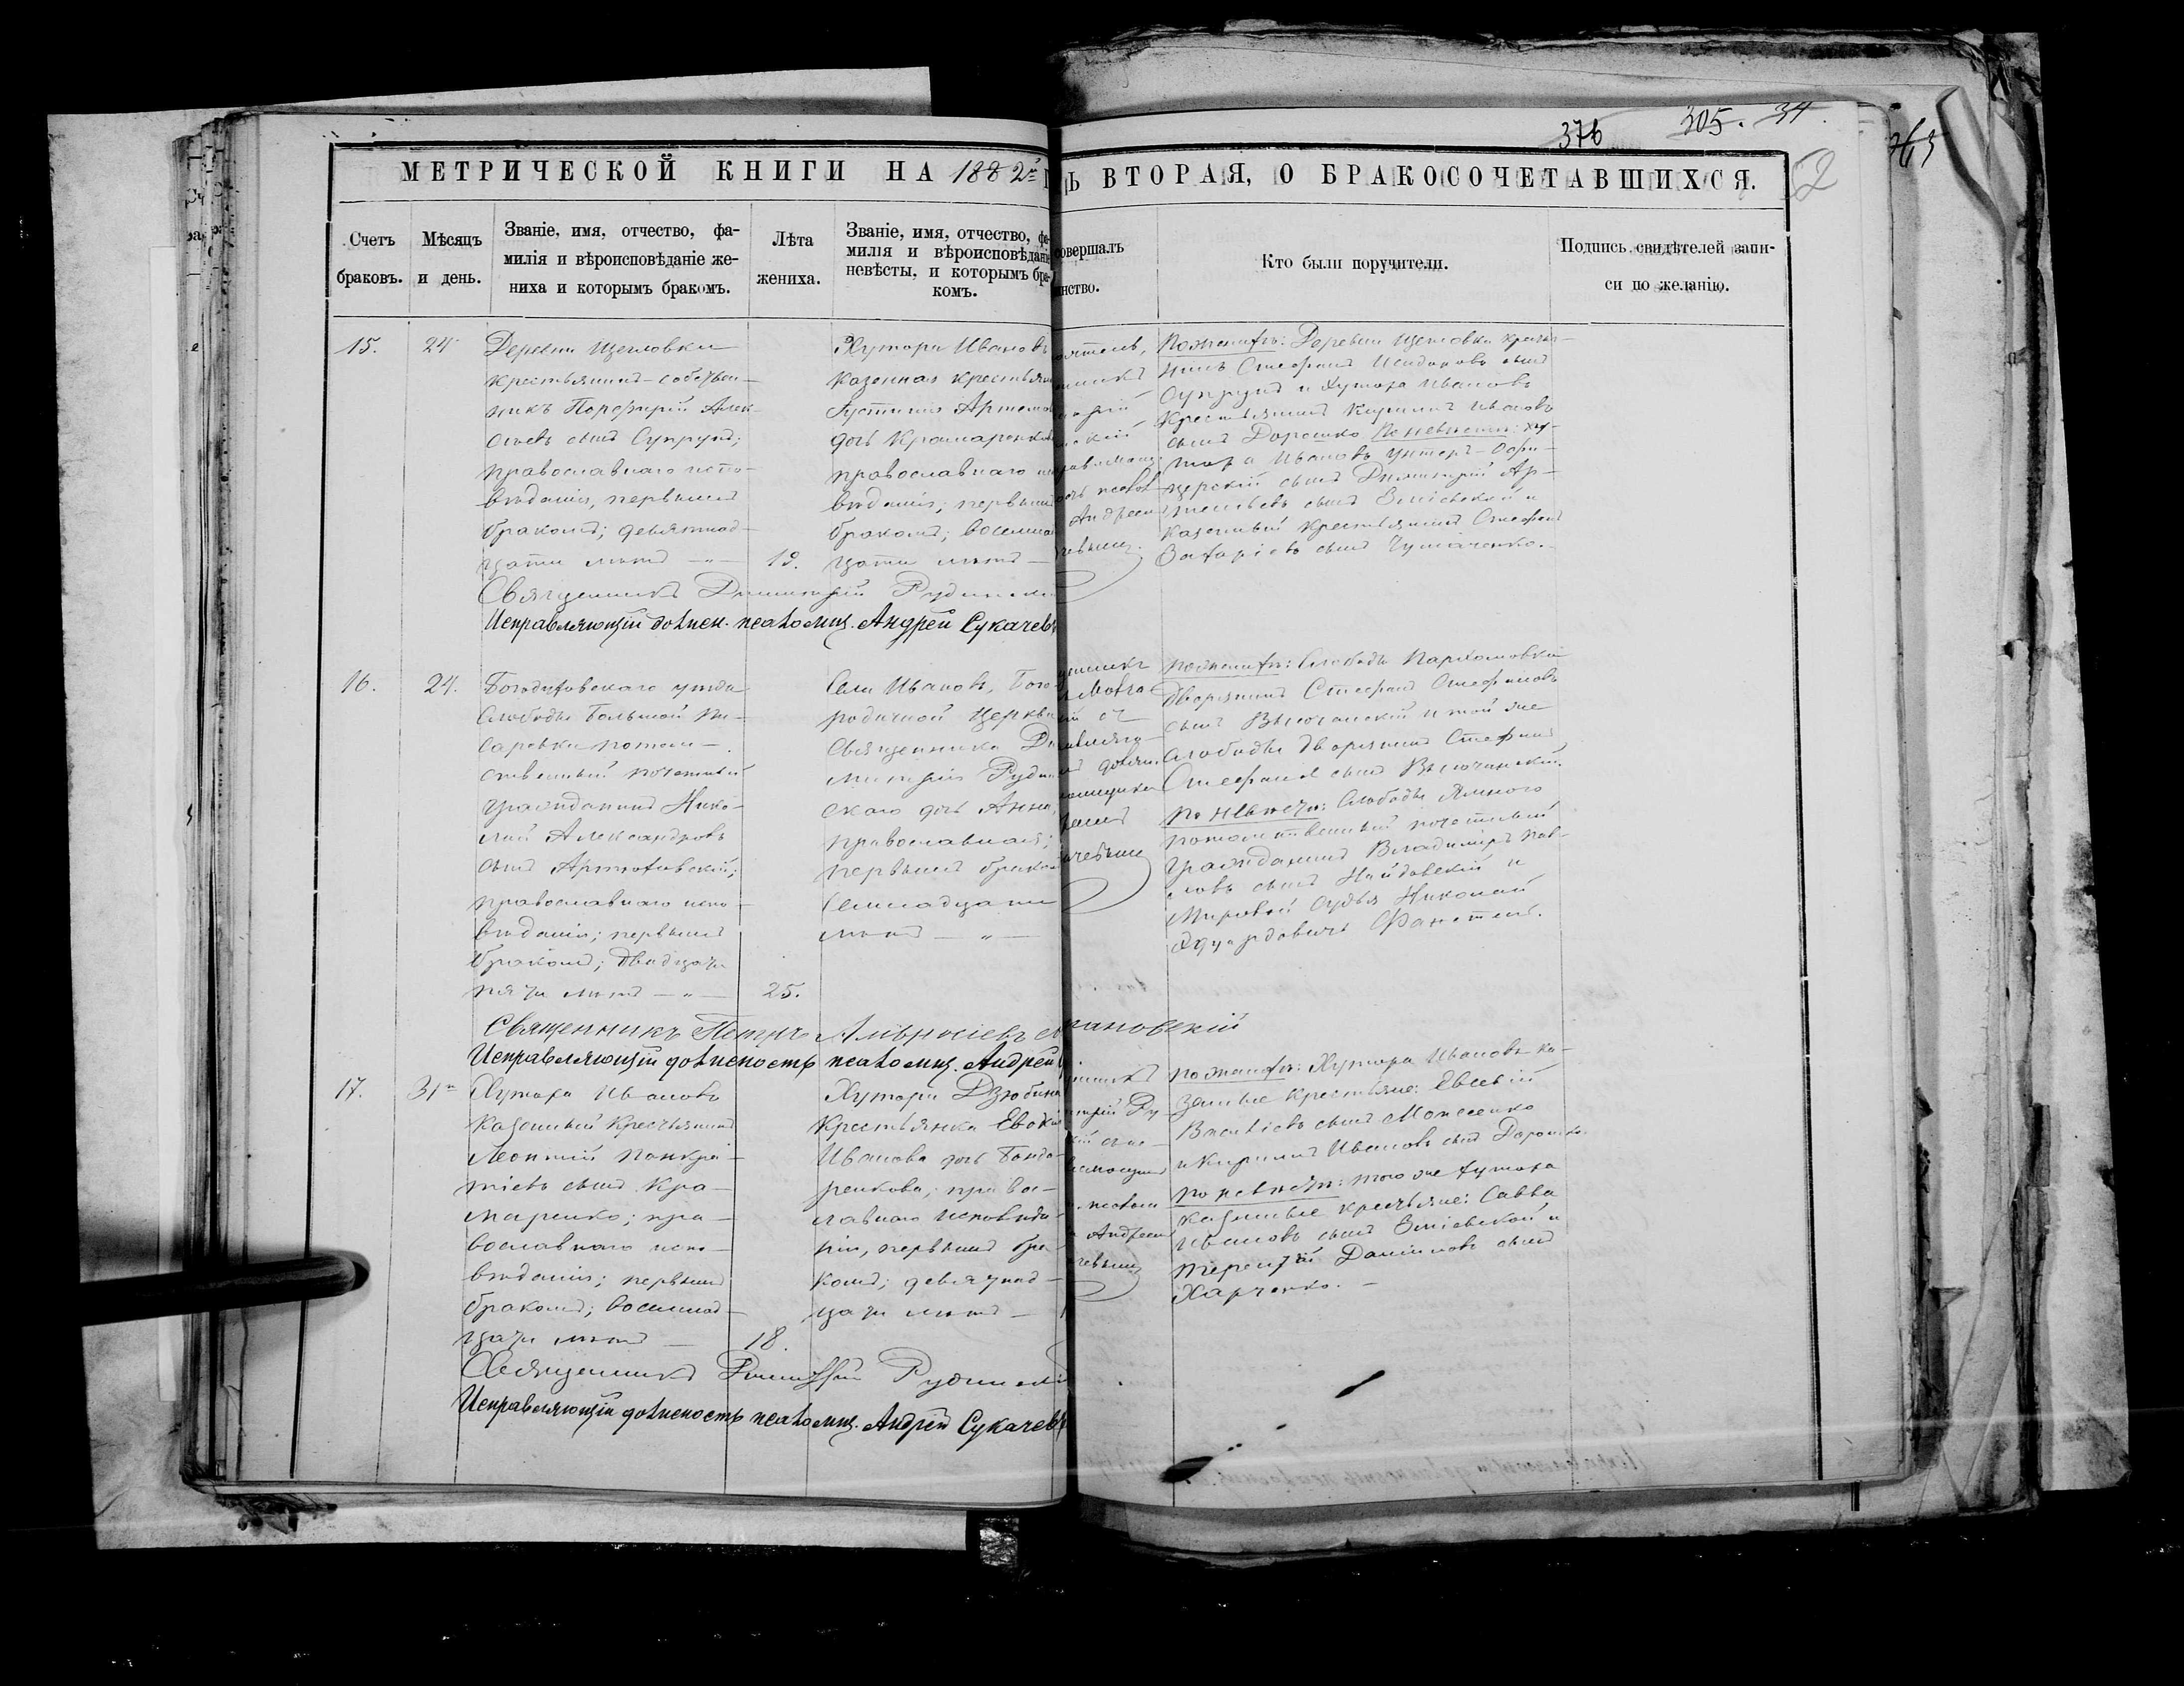 376 305. 34.
52
МЕТРИЧЕСКОЙ КНИГИ НА 1882й Ь ВТОРАЯ, О БРАКОСОЧЕТАВШИХСЯ.
Счетъ браковъ.
Мѣсяцъ и день.
Званіе, имя, отчество, фа-
милія и вѣроисповѣданіе же-
ниха и которымъ бракомъ.
Лѣта жениха.
Званіе, имя, отчество, фа-
милія и вѣроисповѣданіе
невѣсты, и которымъ бра-
комъ.
совершалъ
инство.
Кто были поручители.
Подпись свидѣтелей запи-
си по желанію.
15.
24
Деревни Щегловки
крестьянинъ-собствен-
никъ Порфирій Алек-
сѣевъ сынъ Супрунъ;
православнаго испо-
вѣданія, первымъ
бракомъ; девятнад-
цати лѣтъ — „ —
19.
Хутора Ивановъ
казенная крестьян
Іустинія Артемов
дочь Крамаренков
православнаго ис
вѣданія; первымъ
бракомъ; восемнад
цати лѣтъ —
Андреем
По женихѣ: Деревни Щегловки крестья-
нинъ Стефанъ Исидоровъ сынъ
Супрунъ и хутора Ивановъ
крестьянинъ Кириллъ Ивановъ
сынъ Дорошко По невѣстѣ: ху-
тора Ивановъ унтеръ-офи-
церскій сынъ Димитрій Ар-
сынъ Зміевской и
казенный крестьянинъ Стефанъ
Захаріевъ сынъ Чумаченко.
Священникъ Димитрій Рудинскі
Исправляющій должн. псаломщ. Андрей Сукачевъ
16.
24.
Богодуховскаго уѣзда
Слободы Большой Пи-
саревки потом-
ственный почетный
гражданинъ Нико-
лай Александровъ
сынъ Артюховскій;
православнаго испо-
вѣданія; первымъ
бракомъ; двадцати
пяти лѣтъ — „ —
25.
Села Ивановъ, Бого-
родичной Церкви
Священника Ди
митрія Рудин
скаго дочь Анна,
православная;
первымъ браком
семнадцати
лѣтъ — „ —
По женихѣ: Слободы Пархомовки
дворянинъ Стефанъ Стефановъ
сынъ Высочанскій и той же
слободы дворянинъ Стефанъ
Стефановъ сынъ Высочинскій.
По невѣстѣ: Слободы Ямного
потомственный почетный
гражданинъ Владиміръ Пав-
ловъ сынъ Найдовскій и
Мировой Судья Николай
Эдуардовичъ
Священникъ Петръ
Исправляющій должность псаломщ. Андрей
17.
31го
Хутора Ивановъ
казенный крестьянинъ
Леонтій Панкра-
тіевъ сынъ Кра-
маренко; пра-
вославнаго испо-
вѣданія; первымъ
бракомъ; восемнад-
цати лѣтъ —
18.
Хутора Дзюбина
крестьянка Евдокія
Иванова дочь Бонда-
ренкова; правос-
лавнаго исповѣда-
нія, первымъ бра-
комъ; девятнад-
цати лѣтъ —
Андреем
По женихѣ: Хутора Ивановъ ка-
зенные крестьяне: Евсевій
Василіевъ сынъ Моисеенко
и Кириллъ Ивановъ сынъ Дорошко.
По невѣстѣ: того же хутора
казенные крестьяне: Савва
Ивановъ сынъ Зміевской и
Терентій Даниловъ сынъ
Харченко. —
Священникъ Димитрій Рудинскій
Исправляющій должность псаломщ. Андрей Сукачевъ